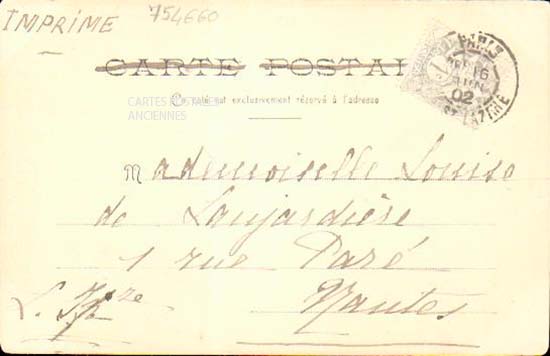 IMPRIME
754660
CARTE POSTALE
Ce côté est exclusivement réservé à l'adresse
CARTES POSTALES
ANCIENNES
PARIS
16
JUIN
02
ST LAZARE
Mademoiselle Louise
de Laujardière
1 rue Paré
Nantes